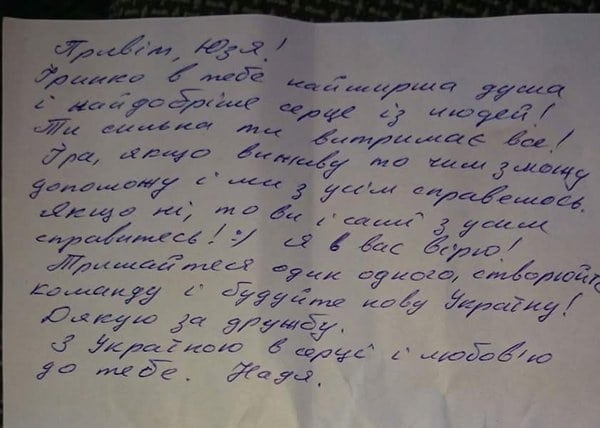 Привіт, Юзя!
Іринко в тебе найширша душа
і найдобріше серце із людей!
Ти сильна ти витримаєш все!
Іра, якщо виживу то чим зможу
допоможу і ми з усім справемось.
Якщо ні, то ви і самі з усим
справитесь! :) Я в вас вірю!
Тримайтеся один одного, створюйте
команду і будуйте нову Україну!
Дякую за дружбу.
З Україною в серці і любов'ю
до тебе. Надя.